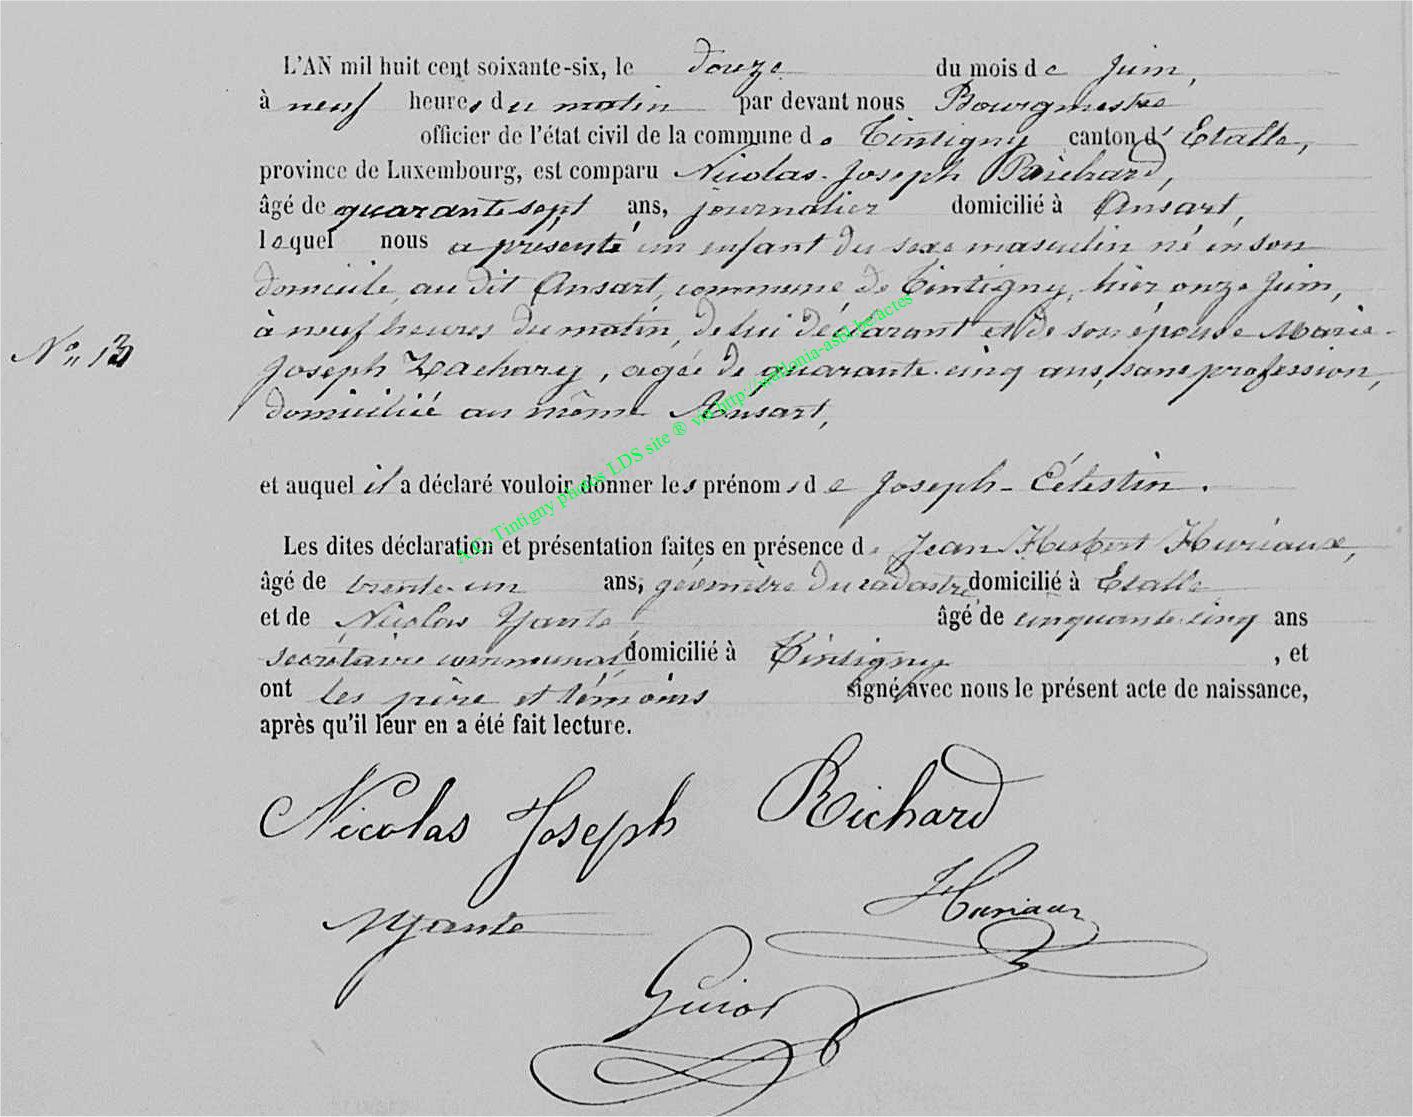 L'AN mil huit cent soixante-six, le douze du mois de Juin,
à neuf heures du matin par devant nous Bourgmestre
officier de l'état civil de la commune de Tintigny canton d'Etalle,
province de Luxembourg, est comparu Nicolas-Joseph Richard,
âgé de quarante sept ans, journalier domicilié à Ansart,
lequel nous a présenté un enfant du sexe masculin né en son
domicile, au dit Ansart, commune de Tintigny, hier onze Juin,
à neuf heures du matin, de lui déclarant et de son épouse Marie-
Nº 13
Joseph Zachary, agée de quarante-cinq ans, sans profession,
domiciliée au même Ansart,
et auquel il a déclaré vouloir donner les prénoms de Joseph-Célestin.
A.C. Tintigny photos LDS site ® via http://wallonia-asbl.be/actes
Les dites déclaration et présentation faites en présence de Jean Huriaux,
âgé de trente-un ans, géomètre du cadastre domicilié à Etalle
et de Nicolas Yante âgé de cinquante-cinq ans
secrétaire communal, domicilié à Tintigny , et
ont les père et témoins signé avec nous le présent acte de naissance,
après qu'il leur en a été fait lecture.
Nicolas Joseph Richard
Huriaux
NYante